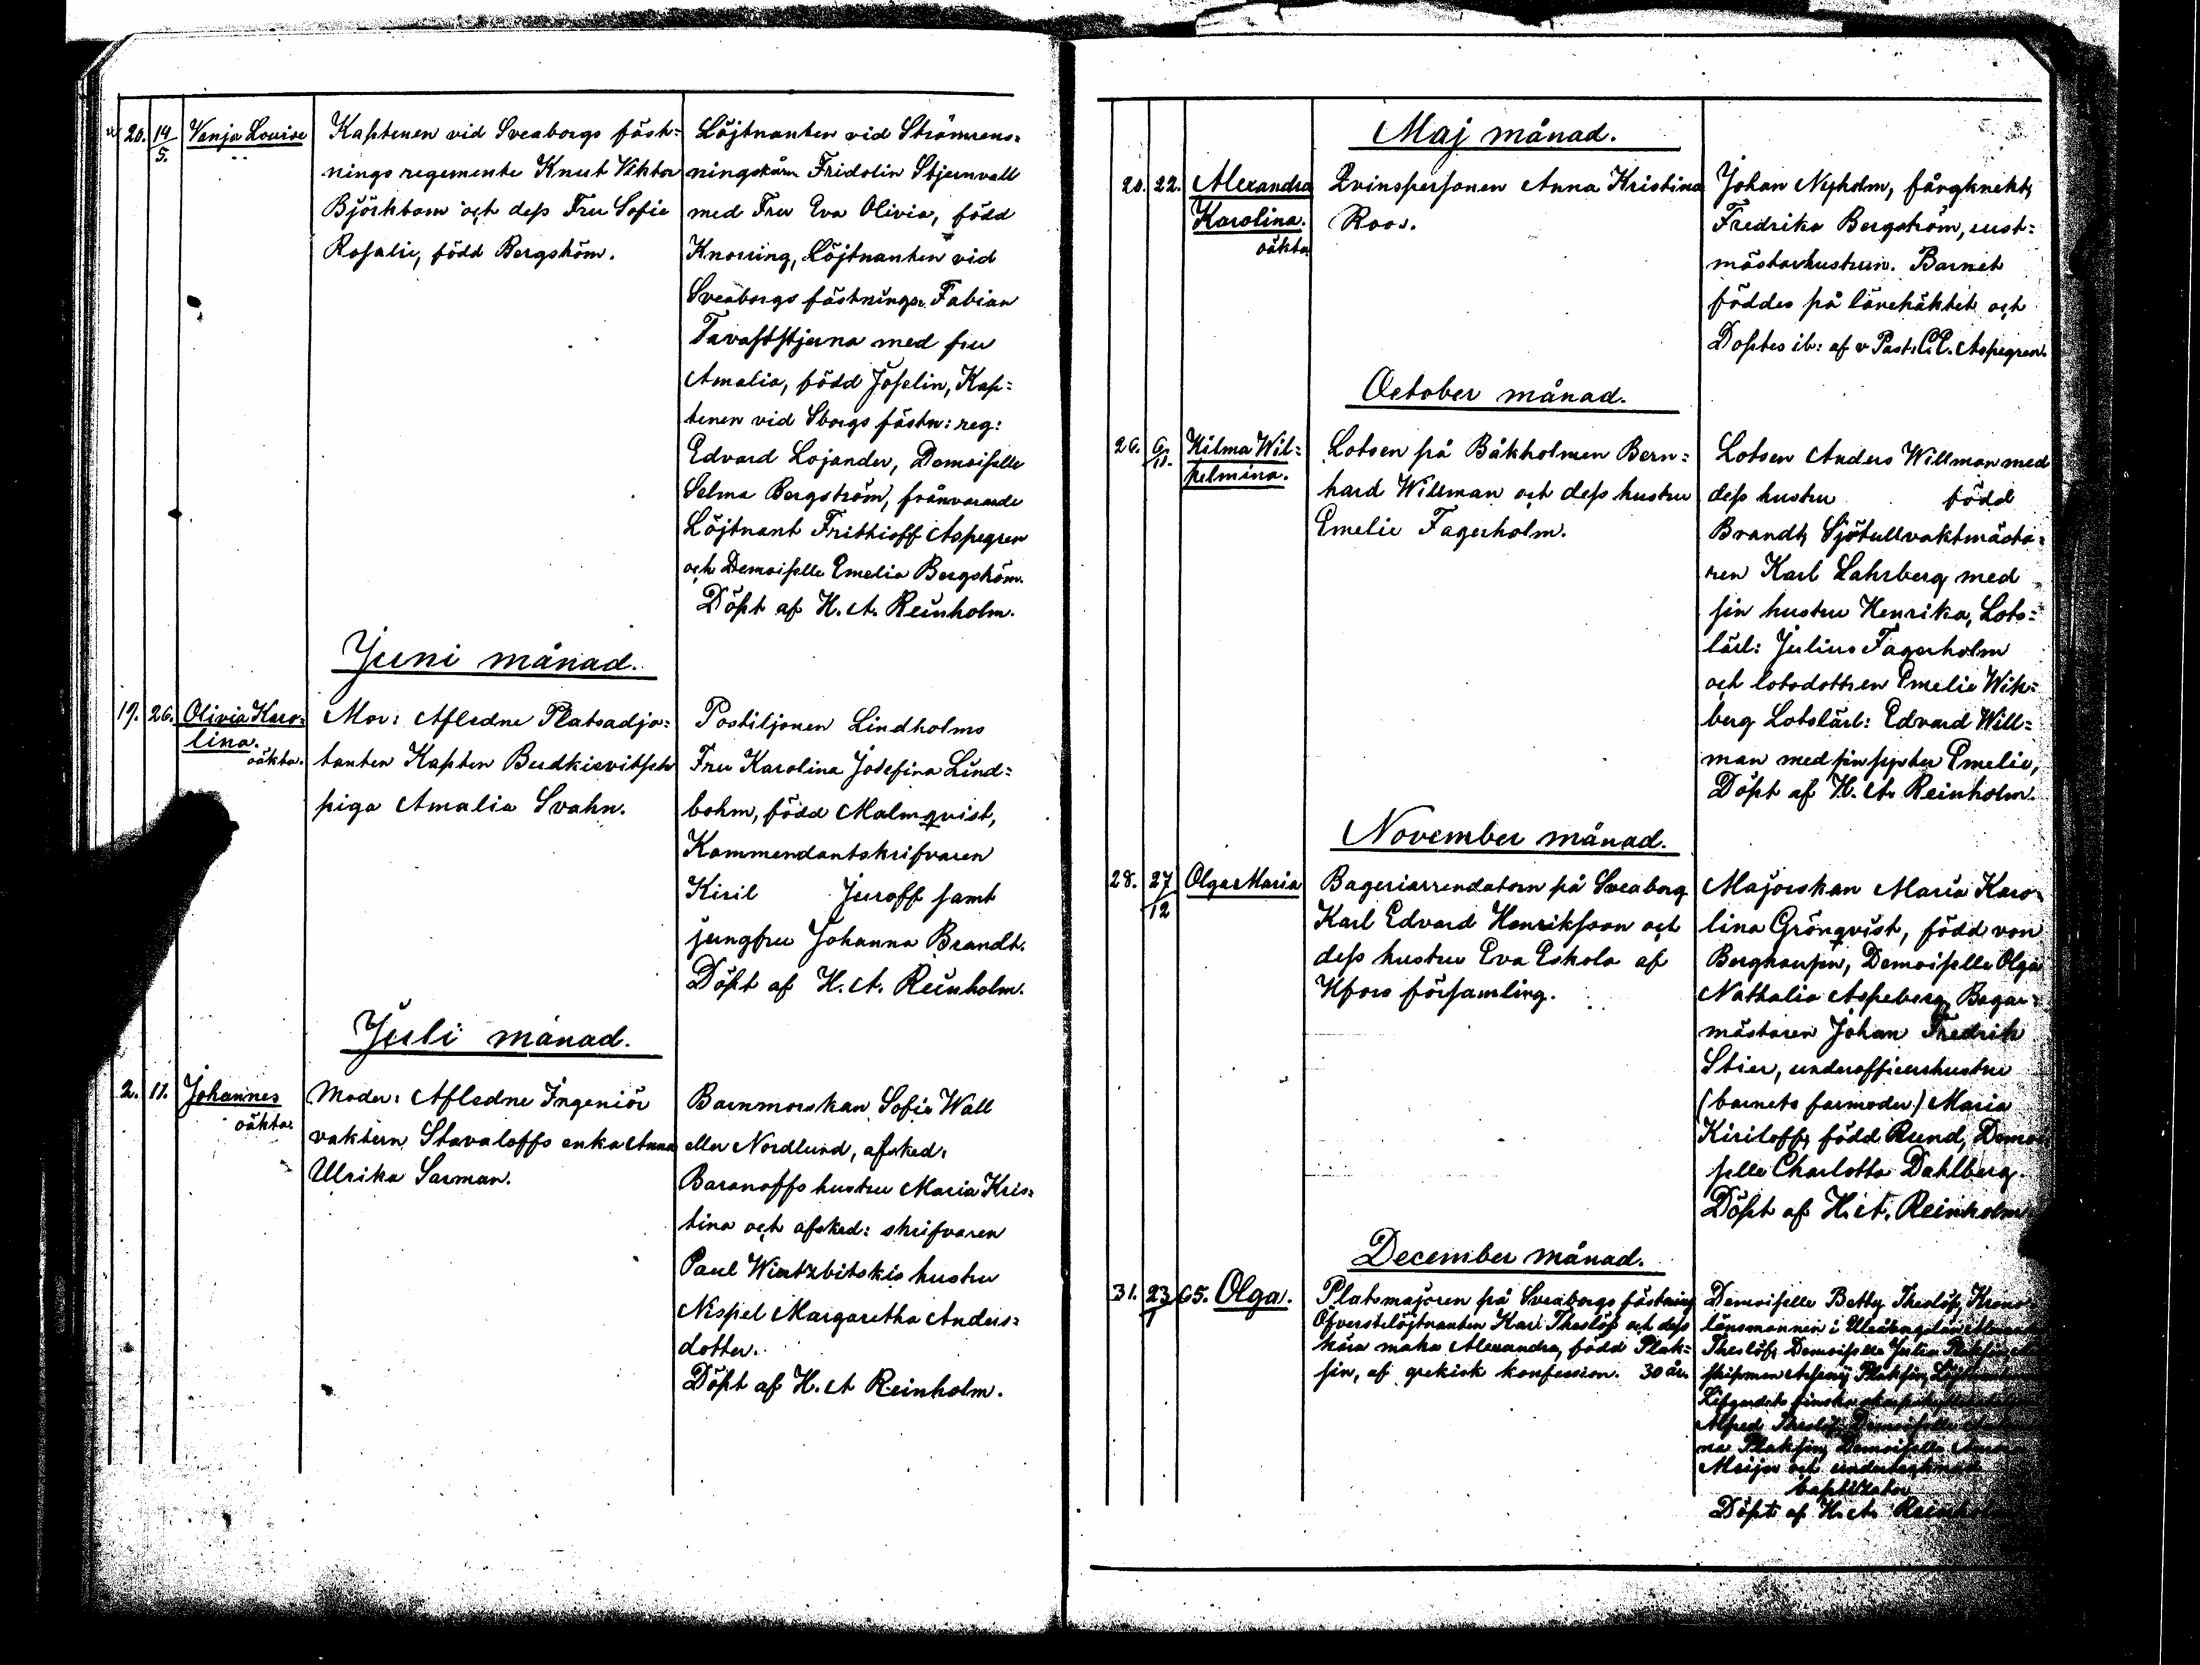 20. 14/5. Vanja Lovise
Kaptenen vid Sveaborgs fäst=
nings regemente Knut Viktor
Björkbom och dess Fru Sofie
Rosalie, född Bergström.
Löjtnanten vid Strömrens=
ningskåren Fridolin Stjernvall
med Fru Eva Olivia, född
Knorring, Löjtnanten vid
Sveaborgs fästningsr. Fabian
Tavaststjerna med fru
Amalia, född Joselin, Kap=
tenen vid Sborgs fästn: reg:
Edvard Lojander, Demoiselle
Selma Bergström, frånvarande
Löjtnant Frithioff Aspegren
och Demoiselle Emelia Bergström.
Döpt af H. A. Reinholm.
Juni månad.
19. 26. Olivia Karo=
lina.
oäkta.
Mor: Aflidne Platsadju=
tanten Kapten Budkievitsch
piga Amalia Svahn.
Postiljonen Lindholms
Fru Karolina Josefina Lind=
bohm, född Malmqvist,
Kommendantskrifvaren
Kiril Juroff samt
jungfru Johanna Brandt.
Döpt af H. A. Reinholm.
Juli månad.
2. 11. Johannes
oäkta.
Moder: Aflidne Ingeniör
vaktern Stavaloffs enka Anna
Ulrika Sarman.
Barnmorskan Sofie Wall
eller Nordlund, afsked:
Baranoffs hustru Maria Kris=
tina och afsked: skrifvaren
Paul Wirtzbitskis hustru
Nispel Margaretha Anders=
dotter.
Döpt af H. A Reinholm.
Maj månad.
20. 22. Alexandra
Karolina.
oäkta
Qvinspersonen Anna Kristina
Roos.
Johan Nyholm, fångknekt,
Fredrika Bergström, rust=
mästarhustrun. Barnet
föddes på länehäktet och
Döptes ib: af v Past. C. C. Aspegren.
October månad.
26. 6/11. Hilma Wil=
helmina.
Lotsen på Båkholmen Bern=
hard Willman och dess hustru
Emelie Fagerholm.
Lotsen Anders Willman med
dess hustru född
Brandt, Sjötullvaktmästa=
ren Karl Lahrberg med
sin hustru Henrika, Lots=
lärl: Julius Fagerholm
och lotsdottren Emelie Wik=
berg Lotslärl: Edvard Will=
man med sin syster Emelie,
Döpt af H. A. Reinholm.
November månad.
28. 27/12 Olga Maria
Bageriarrendatorn på Sveaborg
Karl Edvard Henriksson och
dess hustru Eva Eskola af
Hfors församling.
Majorskan Maria Karo=
lina Grönqvist, född von
Berghausen, Demoiselle Olga
Nathalia Aspeberg, Bagar=
mästaren Johan Fredrik
Stier, underofficershustru
(barnets farmoder) Maria
Kiriloff, född Rund, Demoi
selle Charlotta Dahlberg.
Döpt af H. A. Reinholm
December månad.
31. 23/1 65. Olga.
Platsmajoren på Sveaborgs fästning
Öfverstelöjtnanten Karl Theslöf och dess
kära maka Alexandra, född Plak=
sin, af grekisk konfession. 30 år.
Demoiselle Betty Theslöf, Krono=
länsmannen i Uleåborgs län
Theslöf, Demoiselle Julia Plaksin,
skipman Plaksin, Löjtnanten
Lifgardets finska
Alfred Theslöf, Demoiselle
na Plaksin, Demoiselle
och undertecknad
baptizator
Döpt af H. A. Reinholm